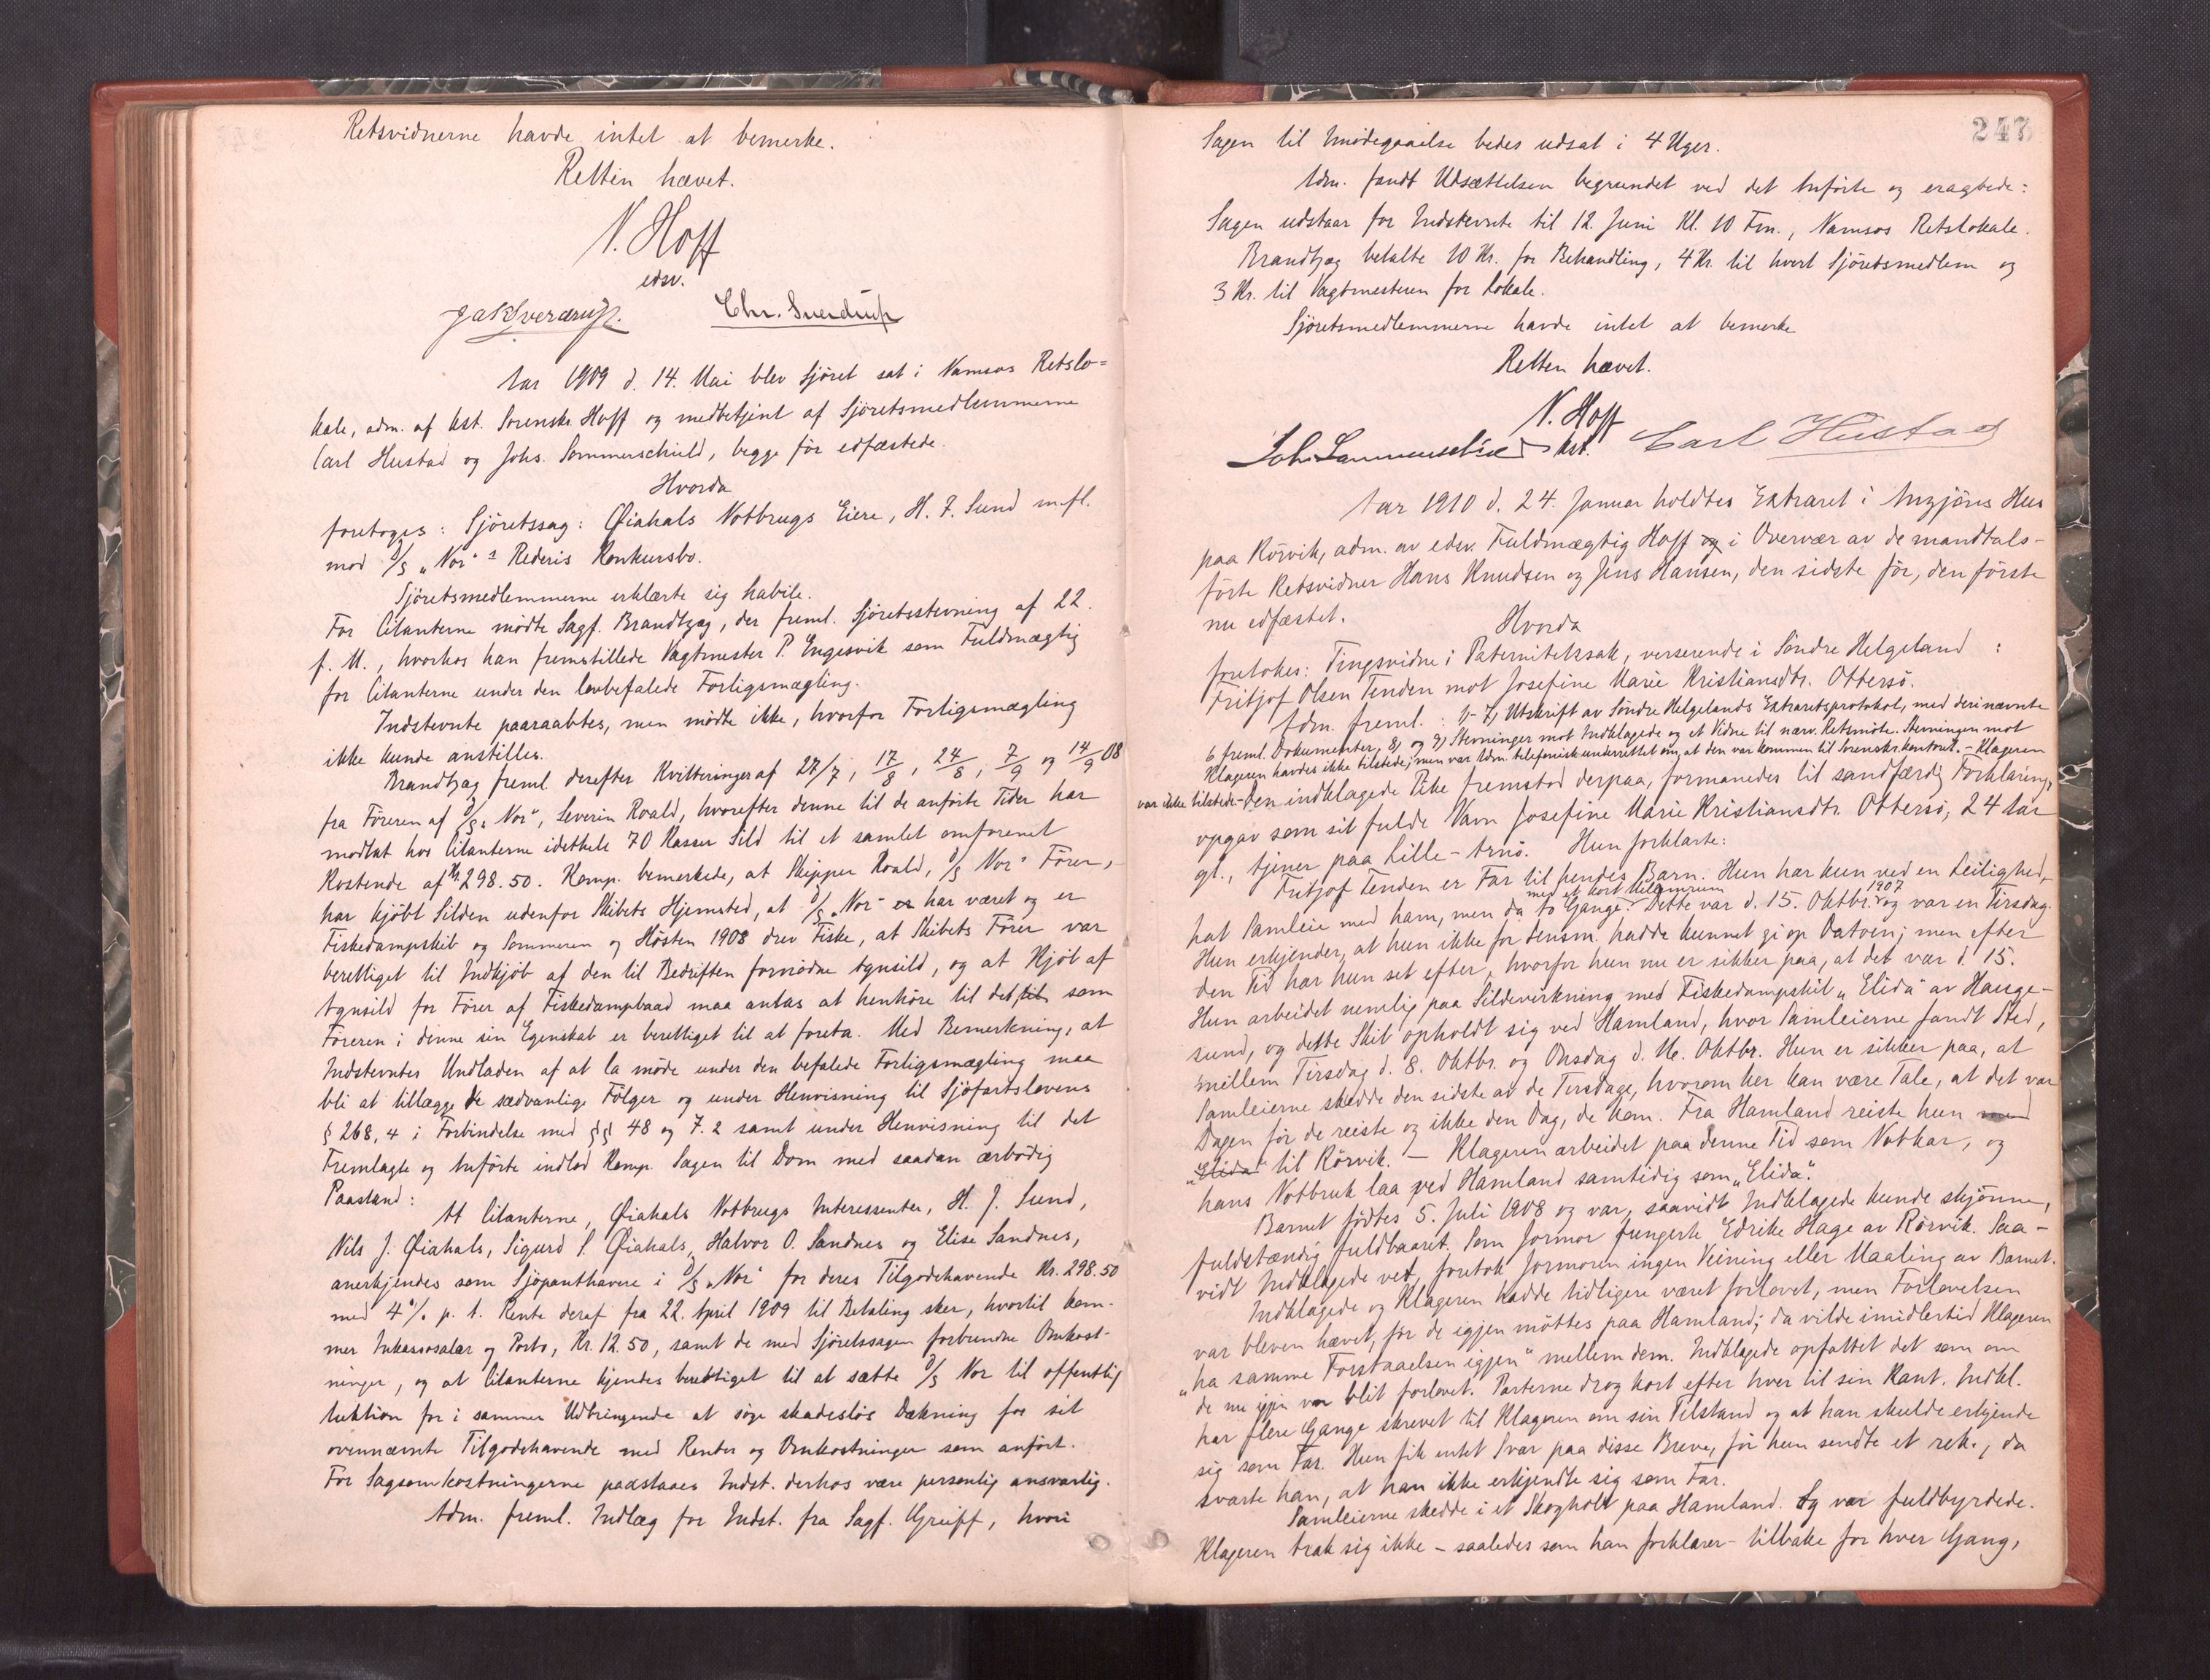 Retsvidnerne havde intet at bemerke.
Retten hævet.
N. Hoff
edsv.
Jak Sverdrup.
Chr. Sverdrup
Aar 1909 d. 14. Mai blev Sjöret sat i Namsos Retslo=
kale, adm. af kst. Sorenskr. Hoff og medbetjent af Sjöretsmedlemmerne
Carl Hustad og Johs. Sommerschield, begge för edfæstede.
Hvorda
foretoges: Sjöretssag: Øiahals Notbrugs Eiere, H. J. Sund m.fl.
mod D/S „Nor“s Rederis Konkursbo.
Sjöretsmedlemmerne erklærte sig habile.
For Citanterne mödte Sagf. Brandtzæg, der freml. Sjöretsstevning af 22.
f. M., hvorhos han fremstillede Vagtmester P. Engesvik som Fuldmægtig
for Citanterne under den lovbefalede Forligsmægling.
Indstevnte paaraabtes, men mödte ikke, hvorfor Forligsmægling
ikke kunde anstilles.
Brandtzæg freml. derefter Kvitteringer af 27/7, 17/8, 24/8, 7/9 og 14/9 08
fra Föreren af D/S „Nor“, Severin Roald, hvorefter denne til de anförte Tider har
modtat hos Citanterne idethele 70 Kasser Sild til et samlet omforenet
Kostende af Kr. 298.50. Komp. bemerkede, at Skipper Roald, D/S „Nor“s Förer,
har kjöbt Silden udenfor Skibets Hjemsted, at D/S „Nor“ er har været og er
Fiskedampskib og Sommeren og Hösten 1908 drev Fiske, at Skibets Förer var
berettiget til Indkjöb af den til Bedriften fornödne Agnsild, og at Kjöb af
Agnsild for Förer af Fiskedampbaad maa antas at henhöre til det til som
Föreren i denne sin Egenskab er berettiget til at foreta. Med Bemerkning, at
Indstevntes Undladen af at la möde under den befalede Forligsmægling maa
bli at tillægge de sædvanlige Fölger og under Henvisning til Sjöfartslovens
§ 268,4 i Forbindelse med §§ 48 og 7.2 samt under Henvisning til det
Fremlagte og Anförte indlod Komp. Sagen til Dom med saadan ærbödig
Paastand:
At Citanterne, Øiahals Notbrugs Interessenter, H. J. Sund,
Nils J. Øiahals, Sigurd S. Øiahals, Halvor O. Sandnes og Elise Sandnes,
anerkjendes som Sjöpanthavere i D/S „Nor“ for deres Tilgodehavende Kr. 298.50
med 4% p. A. Rente deraf fra 22. April 1909 til Betaling sker, hvortil kom-
mer Inkassosalær og Porto, Kr. 12.50, samt de med Sjöretssagen forbundne Omkost-
ninger, og at Citanterne kjendes berettiget til at sætte D/S Nor til offentlig
Auktion for i sammes Udbringende at söge skadeslös Dækning for sit
ovennævnte Tilgodehavende med Renter og Omkostninger som anfört.
For Sagsomkostningerne paastaaes Indst. derhos være personlig ansvarlig.
Adm. freml. Indlæg for Indst. fra Sagf. Greiff, hvori
247
Sagen til Imödegaaelse bedes udsat i 4 Uger.
Adm. fandt Udsættelsen begrundet ved det Anförte og eragtede:
Sagen udstaar for Indstevnte til 12. Juni Kl. 10 Fm., Namsos Retslokale.
Brandtzæg betalte 10 Kr. for Behandling, 4 Kr. til hvert Sjöretsmedlem og
3 Kr. til Vagtmesteren for Lokale.
Sjöretsmedlemmerne havde intet at bemerke
Retten hævet.
N. Hoff
kst.
Joh. Sommerschield
Carl Hustad
Aar 1910 d. 24. Januar holdtes Extraret i Anzjöns Hus
paa Rörvik, adm. av edsv. Fuldmægtig Hoff og i Overvær av de mandtals-
förte Retsvidner Hans Knudsen og Jens Hansen, den sidste för, den förste
nu edfæstet.
Hvorda
foretokes: Tingsvidne i Paternitetssak, verserende i Söndre Helgeland:
Fritjof Olsen Tenden mot Josefine Marie Kristiansdtr. Ottersö.
Adm. freml.: 1)-7) Utskrift av Söndre Helgelands Extraretsprotokol, med deri nævnte
6 freml. Dokumenter, 8) og 9) Stevninger mot Indklagede og et Vidne til nærv. Retsmöte. Stevningen mot
Klageren havdes ikke tilstede, men var Adm. telefonisk underrettet om, at den var kommen til Sorenskr.kontoret. – Klageren
var ikke tilstede. – Den indklagede Pike fremstod derpaa, formanedes til sandfærdig Forklaring,
opgav som sit fulde Navn Josefine Marie Kristiansdtr. Ottersö, 24 Aar
gl., tjener paa Lille-Arnö. Hun forklarte:
Fritjof Tenden er Far til hendes Barn. Hun har kun ved en Leilighed,
med et kort Mellemrum 1907
hat Samleie med ham, men da to Gange. Dette var d. 15. Oktbr. og var en Tirsdag.
Hun erkjender, at hun ikke for Lensm. hadde kunnet gi op Datoen; men efter
den Tid har hun set efter, hvorfor hun nu er sikker paa, at det var d. 15.
Hun arbeidet nemlig paa Sildevirkning med Fiskedampskib „Elida“ av Hauge-
sund, og dette Skib opholdt sig ved Hamland, hvor Samleierne fandt Sted,
mellem Tirsdag d. 8. Oktbr. og Onsdag d. 16. Oktbr. Hun er sikker paa, at
Samleierne skedde den sidste av de Tirsdage, hvorom her kan være Tale, at det var
Dagen för de reiste og ikke den Dag, de kom. Fra Hamland reiste hun med
„Elida“ til Rörvik. – Klageren arbeidet paa denne Tid som Notkar, og
hans Notbruk laa ved Hamland samtidig som „Elida“.
Barnet födtes 5. Juli 1908 og var, saavidt Indklagede kunde skjönne,
fuldstændig fuldbaaret. Som Jormor fungerte Edrike Hage av Rörvik. Saa-
vidt Indklagede vet, foretok Jormoren ingen Veining eller Maaling av Barnet.
Indklagede og Klageren hadde tidligere været forlovet, men Forlovelsen
var bleven hævet, för de igjen möttes paa Hamland; da vilde imidlertid Klageren
„ha samme Forstaaelsen igjen“ mellem dem. Indklagede opfattet det som om
de nu igjen var blit forlovet. Parterne drog kort efter hver til sin Kant. Indkl.
har flere Gange skrevet til Klageren om sin Tilstand og at han skulde erkjende
sig som Far. Hun fik intet Svar paa disse Breve, för hun sendte et rek., da
svarte han, at han ikke erkjendte sig som Far.
Samleierne skedde i et Skogholt paa Hamland. Og var fuldbyrdede.
Klageren trak sig ikke – saaledes som han forklarer – tilbake for hver Gang,